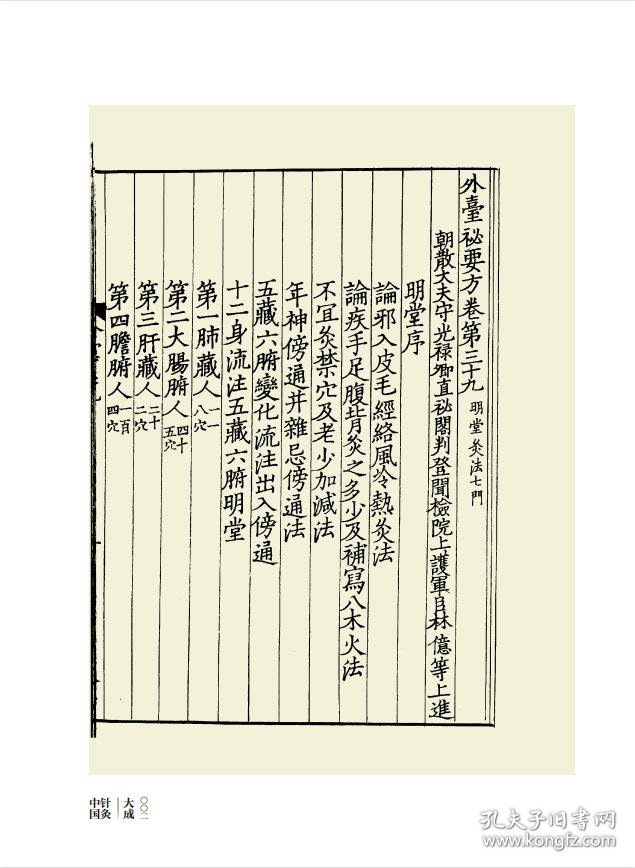 外臺祕要方卷第三十九 明堂灸法七門
朝散大夫守光禄卿直祕閣判登聞檢院上護軍臣林億等上進
明堂序
論邪入皮毛經絡風冷熱灸法
論疾手足腹背灸之多少及補寫八木火法
不宜灸禁穴及老少加減法
年神傍通并雜忌傍通法
五藏六腑變化流注出入傍通
十二身流注五藏六腑明堂
第一肺藏人一十八穴
第二大腸腑人四十五穴
第三肝藏人二十二穴
第四膽腑人一百四穴
中国
针灸
大成
〇〇二
孔夫子旧书网